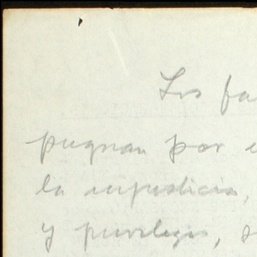 Los fa
pugnan por e
la injusticia,
y privilegio, s